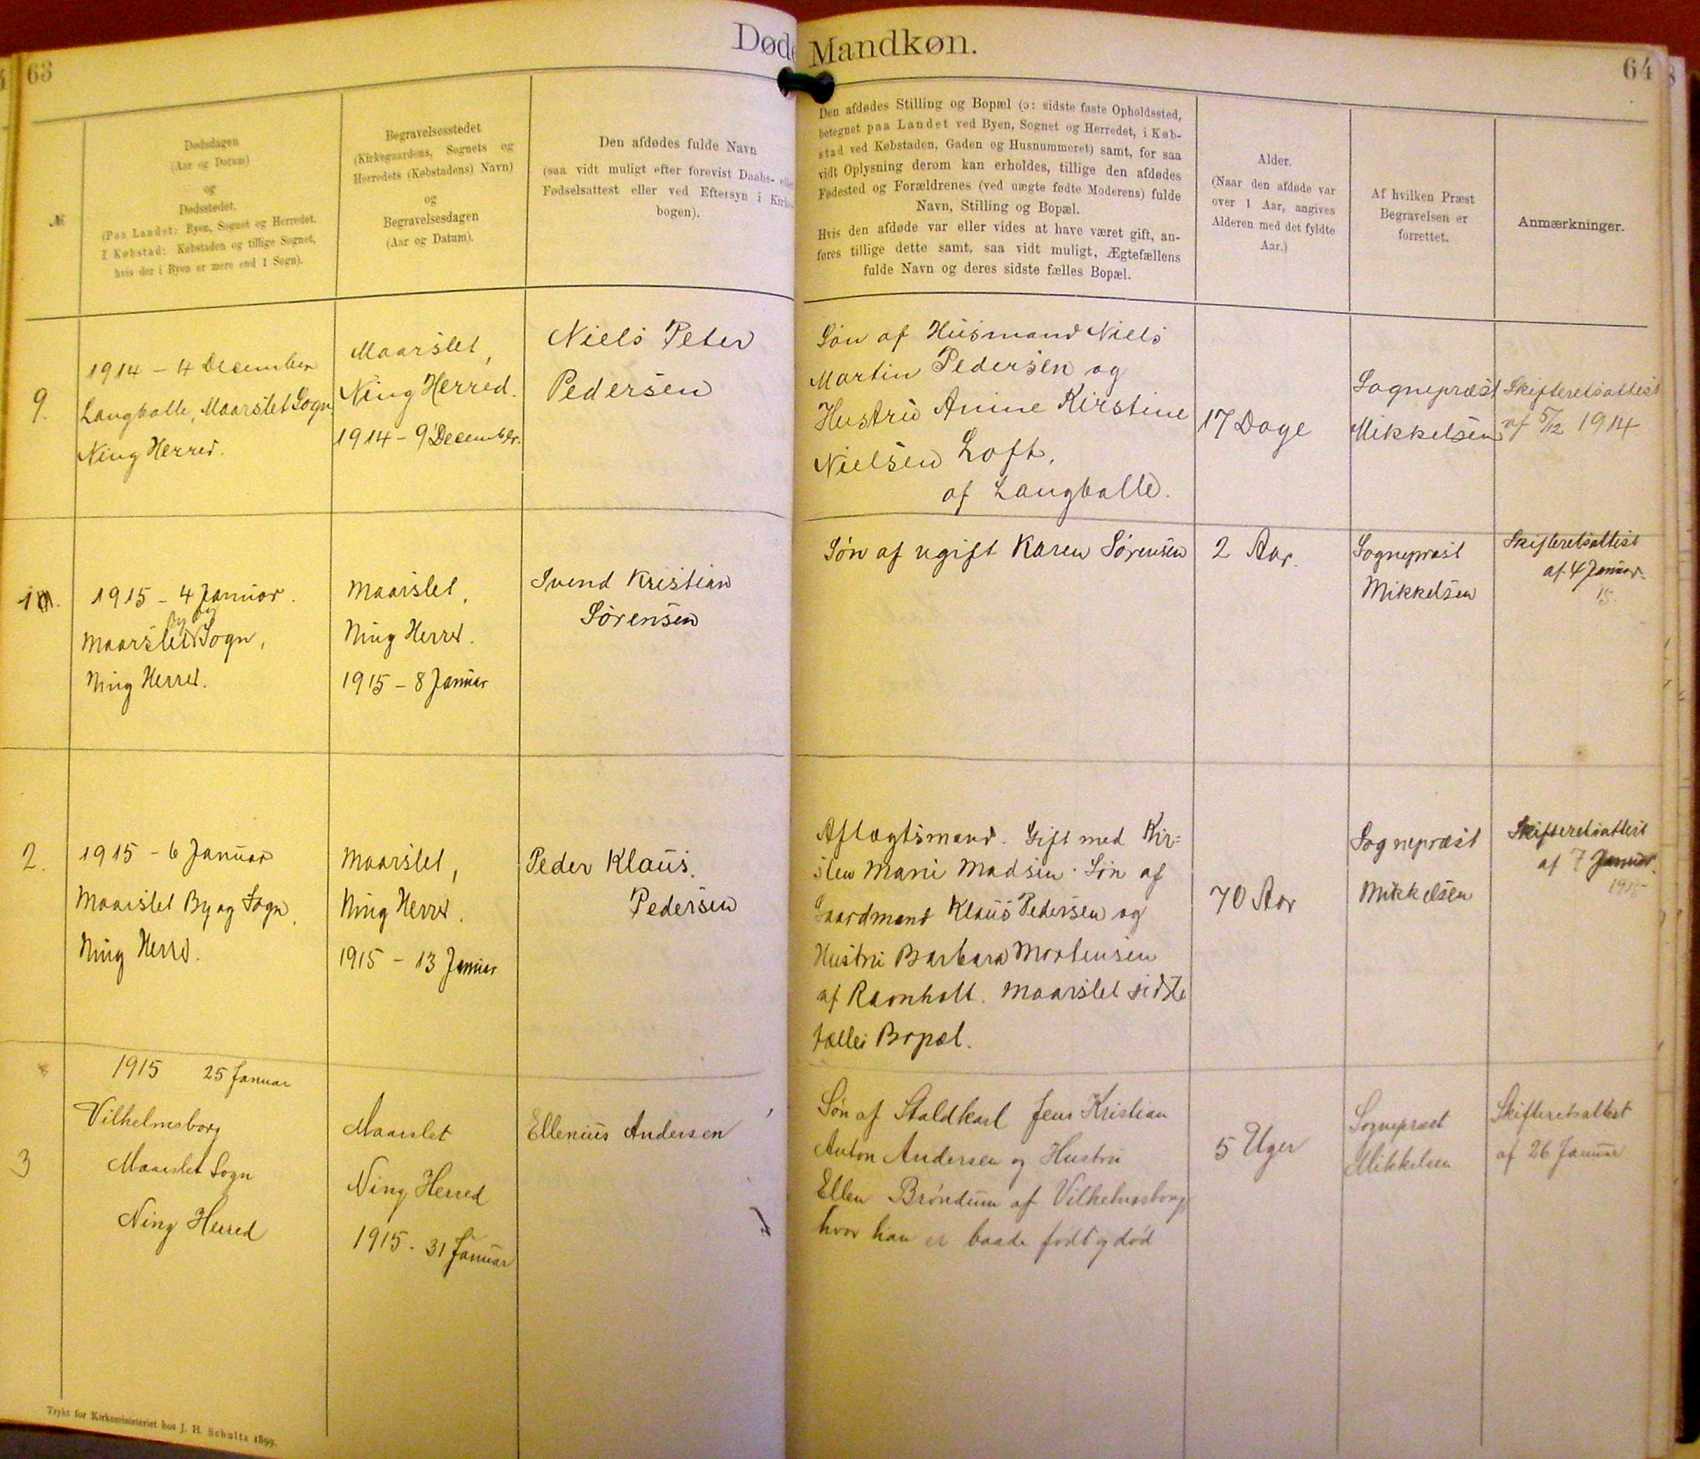 63
Døde
Mandkøn.
64
№
Dødsdagen
(Aar og Datum)
og
Dødsstedet.
(Paa Landet: Byen, Sognet og Herredet.
I Købstad: Købstaden og tillige Sognet,
hvis der i Byen er mere end 1 Sogn).
Begravelsesstedet
(Kirkegaardens, Sognets og
Herredets (Købstadens) Navn)
og
Begravelsesdagen
(Aar og Datum).
Den afdødes fulde Navn
(saa vidt muligt efter forevist Daabs- eller
Fødselsattest eller ved Eftersyn i Kirke-
bogen).
Den afdødes Stilling og Bopæl (ɔ: sidste faste Opholdssted,
betegnet paa Landet ved Byen, Sognet og Herredet, i Køb-
stad ved Købstaden, Gaden og Husnummeret) samt, for saa
vidt Oplysning derom kan erholdes, tillige den afdødes
Fødested og Forældrenes (ved uægte fødte Moderens) fulde
Navn, Stilling og Bopæl.
Hvis den afdøde var eller vides at have været gift, an-
føres tillige dette samt, saa vidt muligt, Ægtefællens
fulde Navn og deres sidste fælles Bopæl.
Alder.
(Naar den afdøde var
over 1 Aar, angives
Alderen med det fyldte
Aar.)
Af hvilken Præst
Begravelsen er
forrettet.
Anmærkninger.
9.
1914 – 4 December
Langballe, Maarslet Sogn
Ning Herred.
Maarslet,
Ning Herred.
1914 – 9 December.
Niels Peter
Pedersen
Søn af Husmand Niels
Martin Pedersen og
Hustru Anine Kirstine
Nielsen Loft,
af Langballe.
17 Dage
Sognepræst
Mikkelsen
Skifteretsattest
af 5/12 1914
1.
1915 – 4 Januar.
By og
Maarslet Sogn,
Ning Herred.
Maarslet,
Ning Herred.
1915 – 8 Januar
Svend Kristian
Sørensen
Søn af ugift Karen Sørensen
2 Aar.
Sognepræst
Mikkelsen
Skifteretsattest
af 4 Januar.
15.
2.
1915 – 6 Januar
Maarslet By og Sogn,
Ning Herred.
Maarslet,
Ning Herred.
1915 – 13 Januar
Peder Klaus.
Pedersen
Aftægtsmand. Gift med Kir=
sten Marie Madsen. Søn af
Gaardmand Klaus Pedersen og
Hustru Barbara Mortensen
af Ravnholt. Maarslet sidste
fælles Bopæl.
70 Aar
Sognepræst
Mikkelsen
Skifteretsattest
af 7 Januar.
1915
3
1915 25 Januar
Vilhelmsborg
Maarslet Sogn
Ning Herred
Maarslet
Ning Herred
1915. 31 Januar
Ellenius Andersen
Søn af Staldkarl Jens Kristian
Anton Andersen og Hustru
Ellen Brøndum af Vilhelmsborg
hvor han er baade født og død
5 Uger
Sognepræst
Mikkelsen
Skifteretsattest
af 26 Januar
Trykt for Kirkeministeriet hos J. H. Schultz 1899.